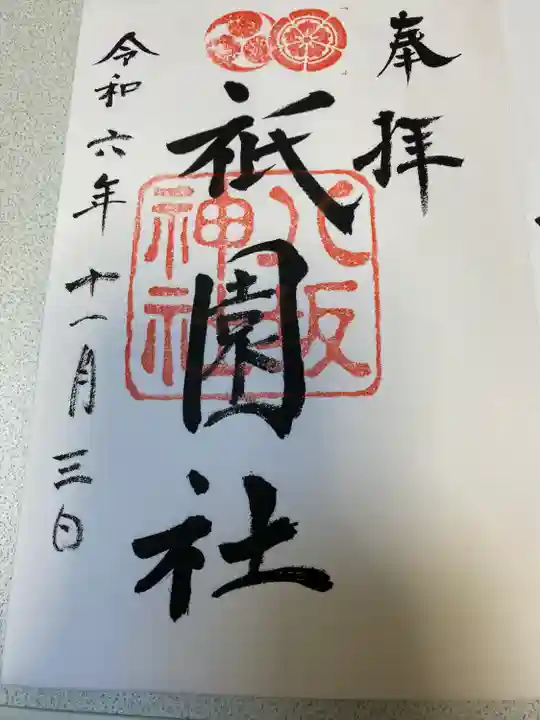 奉拝
祇園社
八坂
神社
令和六年十一月三日